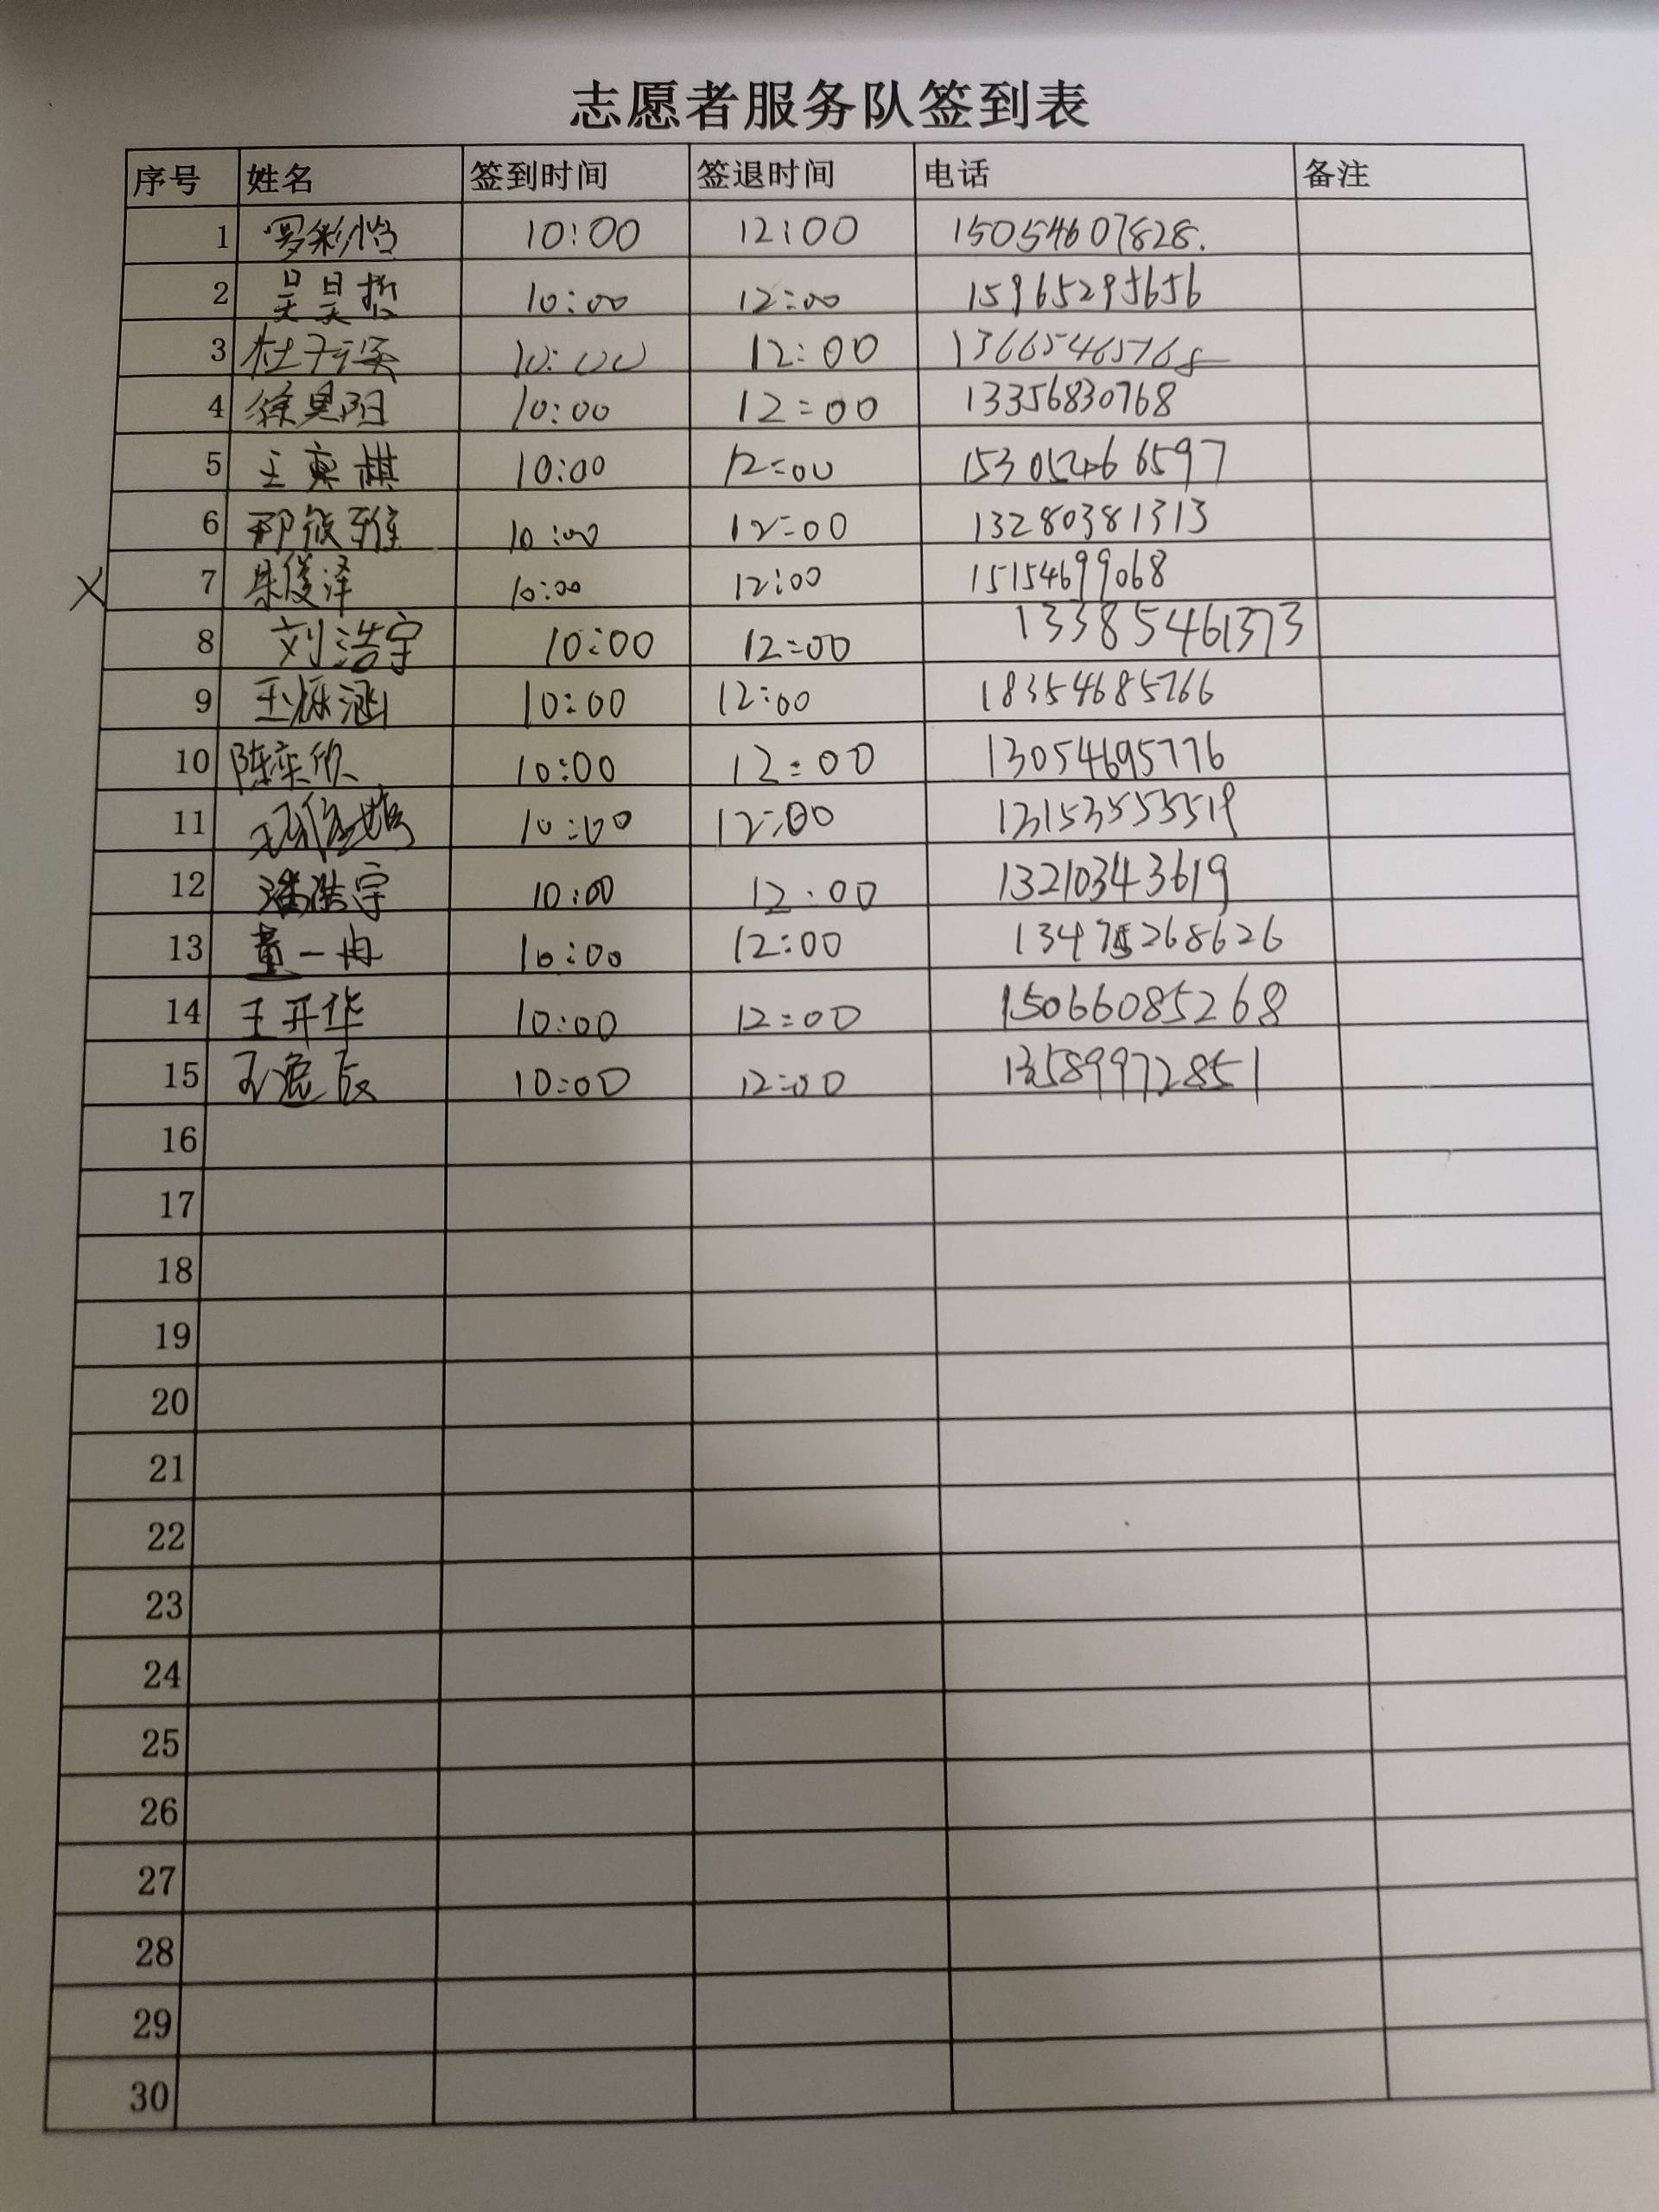 志愿者服务队签到表
序号 姓名 签到时间 签退时间 电话 备注
1 罗彩怡 10:00 12:00 15054607828.
2 吴昊哲 10:00 12:00 15965295656
3 10:00 12:00 13665465768
4 徐昊阳 10:00 12:00 13356830768
5 10:00 12:00 15305466597
6 邢筱雅 10:00 12:00 13280381313
X 7 朱俊泽 10:00 12:00 15154699068
8 刘浩宇 10:00 12:00 13385461373
9 王烁涵 10:00 12:00 18354685766
10 陈奕欣 10:00 12:00 13054695776
11 10:00 12:00 13153553519
12 潘浩宇 10:00 12:00 13210343619
13 董一冉 10:00 12:00 13475268626
14 王开华 10:00 12:00 15066085268
15 10:00 12:00 13589972851
16
17
18
19
20
21
22
23
24
25
26
27
28
29
30